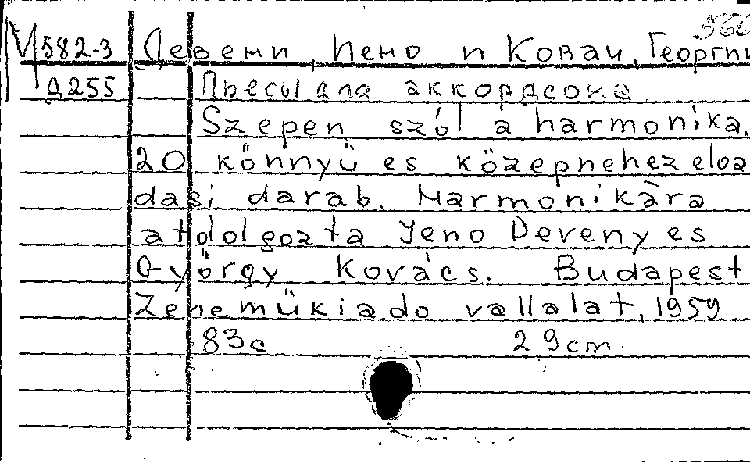 М582-3 Девени, Иено и Ковач, Георги
Д255 Пьесы для аккордеона
Szepen szól a harmonika.
20 könnyü es közepnehez eloa
dasi darab. Harmonikára
atdolgozta Jeno Deveny es
György Kovács. Budapest
Zenemükiado vallalat, 1959
83с 29cm